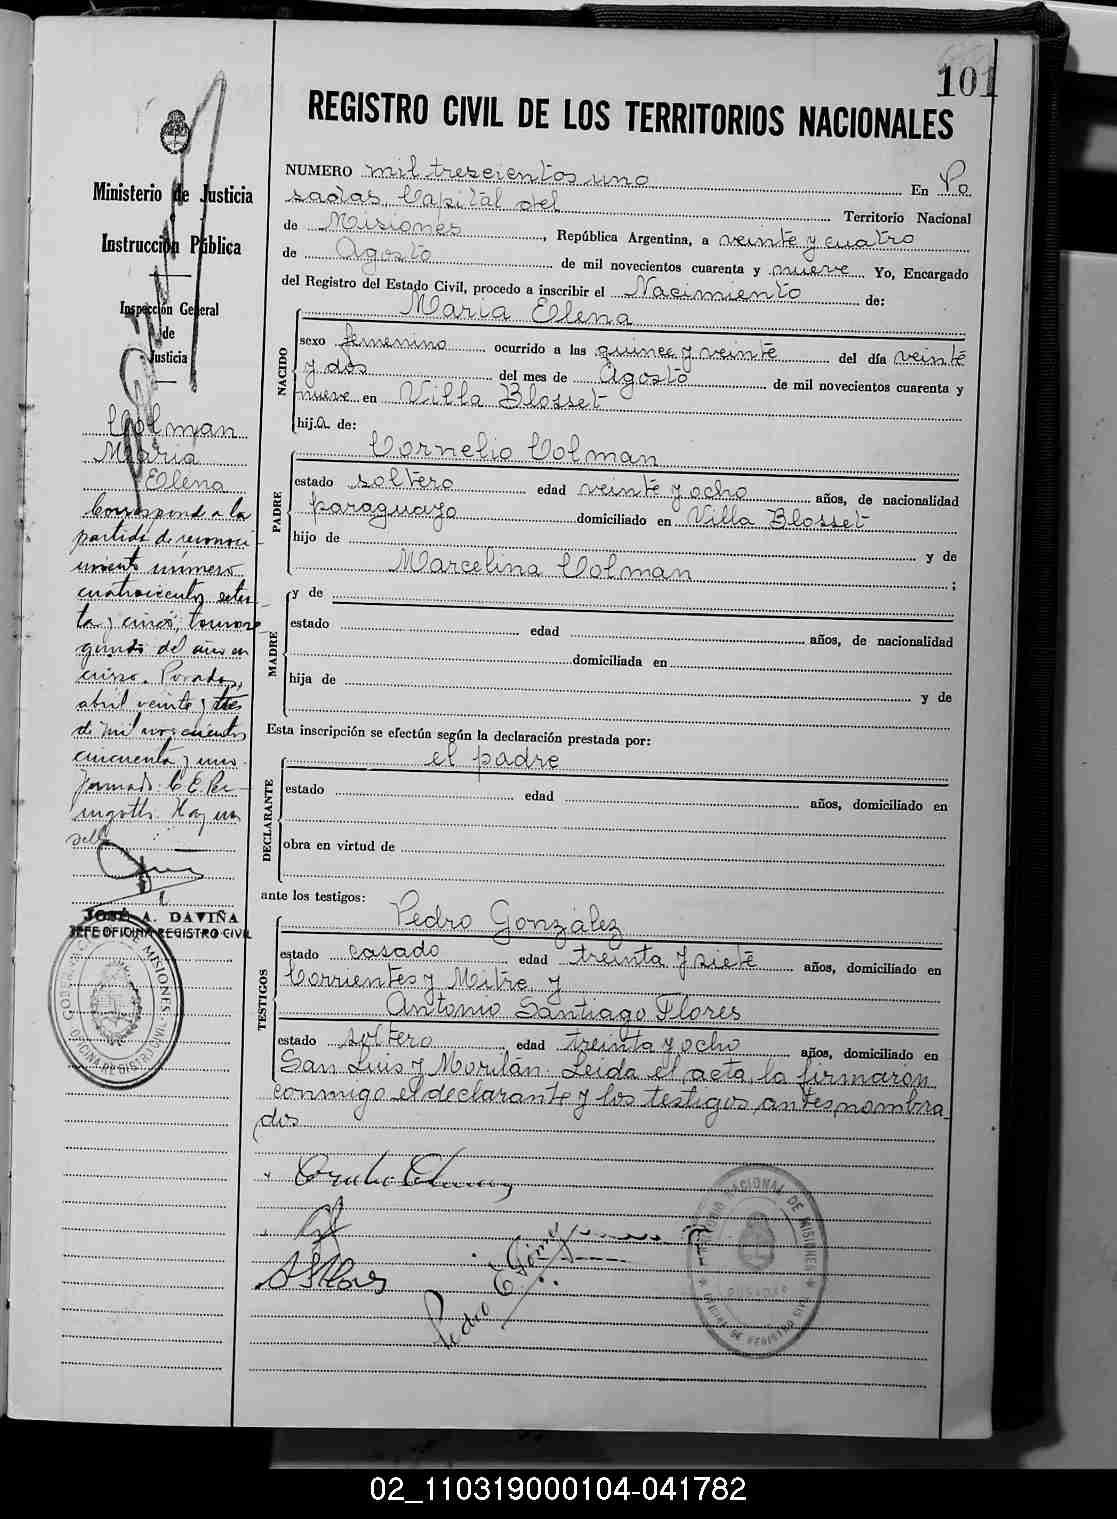 101
REGISTRO CIVIL DE LOS TERRITORIOS NACIONALES
Ministerio de Justicia
Instrucción Pública
Inspección General
de
Justicia
Colman
Maria
Elena
Corresponde a la
partida de reconoci
miento número
cuatrocientos seten
ta y cinco, tomo se
gundo del año en
curso. Posadas,
abril veinte y tres
de mil novecientos
cincuenta y uno.
Firmado: C. E.
Hay un
sello
JOSÉ A. DAVIÑA
JEFE OFICINA REGISTRO CIVIL
GOBERNACION DE MISIONES
OFICINA REGISTRO CIVIL
NUMERO mil trescientos uno En Po
sadas, Capital del Territorio Nacional
de Misiones, República Argentina, a veinte y cuatro
de Agosto de mil novecientos cuarenta y nueve Yo, Encargado
del Registro del Estado Civil, procedo a inscribir el Nacimiento de:
Maria Elena
NACIDO
sexo femenino ocurrido a las quince y veinte del día veinte
y dos del mes de Agosto de mil novecientos cuarenta y
nueve en Villa Blosset
hija de:
Cornelio Colman
PADRE
estado soltero edad veinte y ocho años, de nacionalidad
paraguayo domiciliado en Villa Blosset
hijo de y de
Marcelina Colman ;
MADRE
y de
estado edad años, de nacionalidad
domiciliada en
hija de y de
Esta inscripción se efectúa según la declaración prestada por:
el padre
DECLARANTE
estado edad años, domiciliado en
obra en virtud de
ante los testigos:
Pedro González
TESTIGOS
estado casado edad treinta y siete años, domiciliado en
Corrientes y Mitre y
Antonio Santiago Flores
estado soltero edad treinta y ocho años, domiciliado en
San Luis y Morilán. Leida el acta, la firmaron
conmigo el declarante y los testigos antes nombra
dos
A S Flores
Pedro E. Gómez
NACIONAL DE MISIONES
POSADAS
OFICINA DE REGISTRO CIVIL
02_110319000104-041782